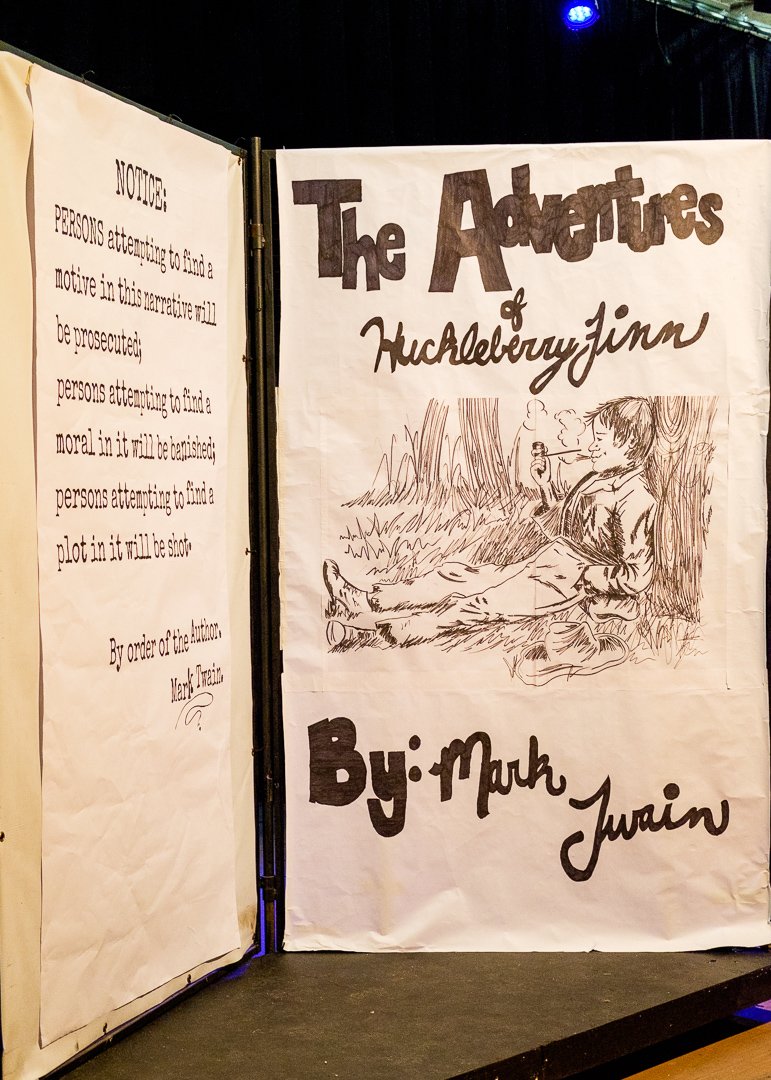 NOTICE:
PERSONS attempting to find a
motive in this narrative will
be prosecuted;
persons attempting to find a
moral in it will be banished;
persons attempting to find a
plot in it will be shot.
By order of the Author.
Mark Twain.
The Adventures
of
Huckleberry Finn
By: Mark
Twain